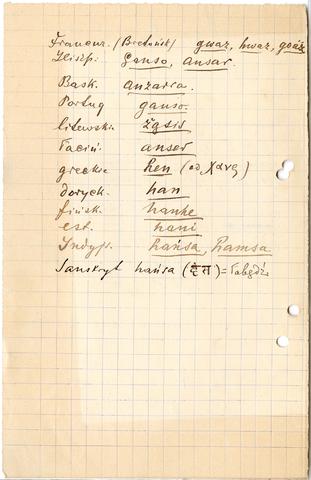 Francuz. (Bretońsk) gwaz, hwaz, goáz
Hiszp: Ganso, ansar.
Bask. anzarra.
Portug ganso.
litewski. żąsis
łaciń. anser
greckie hen (od χανς)
doryck. han
fińsk. hanhe
est. hani
Indyjs. hańsa, hamsa
Sanskryt hańsa (हंस) = łabędź